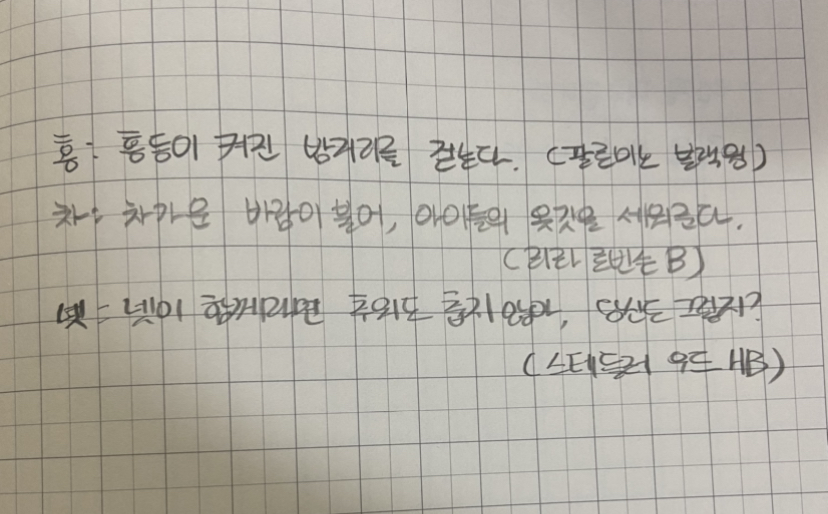 홍: 홍등이 켜진 밤거리를 걷는다. (팔로미노 블랙윙)
차: 차가운 바람이 불어, 아이들의 옷깃을 세워준다.
(리라 로빈슨 B)
넷: 넷이 함께라면 추위도 춥지않아, 당신도 그렇지?
(스테들러 우드 HB)